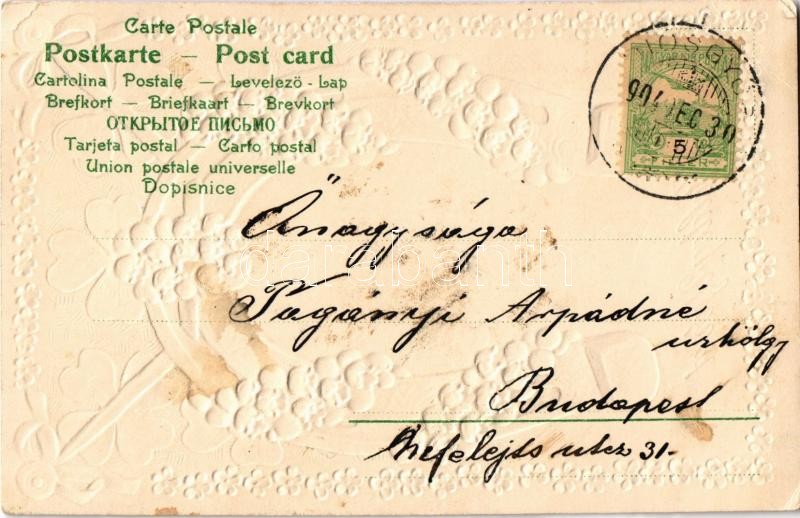 Carte Postale
Postkarte — Post card
Cartolina Postale — Levelező-Lap
Brefkort — Briefkaart — Brevkort
ОТКРЫТОЕ ПИСЬМО
Tarjeta postal — Carto postal
Union postale universelle
Dopisnice
904 DEC 30
5
FILLER
Őnagysága
Pogányi Arpádné
urhölgy
Budapest
Nefelejts utcz 31.
darabanth